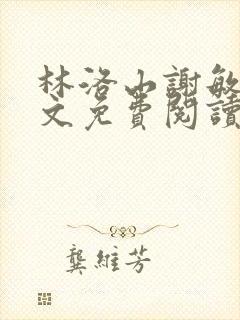 林洛山謝敏
文免費閱讀
龔維芳